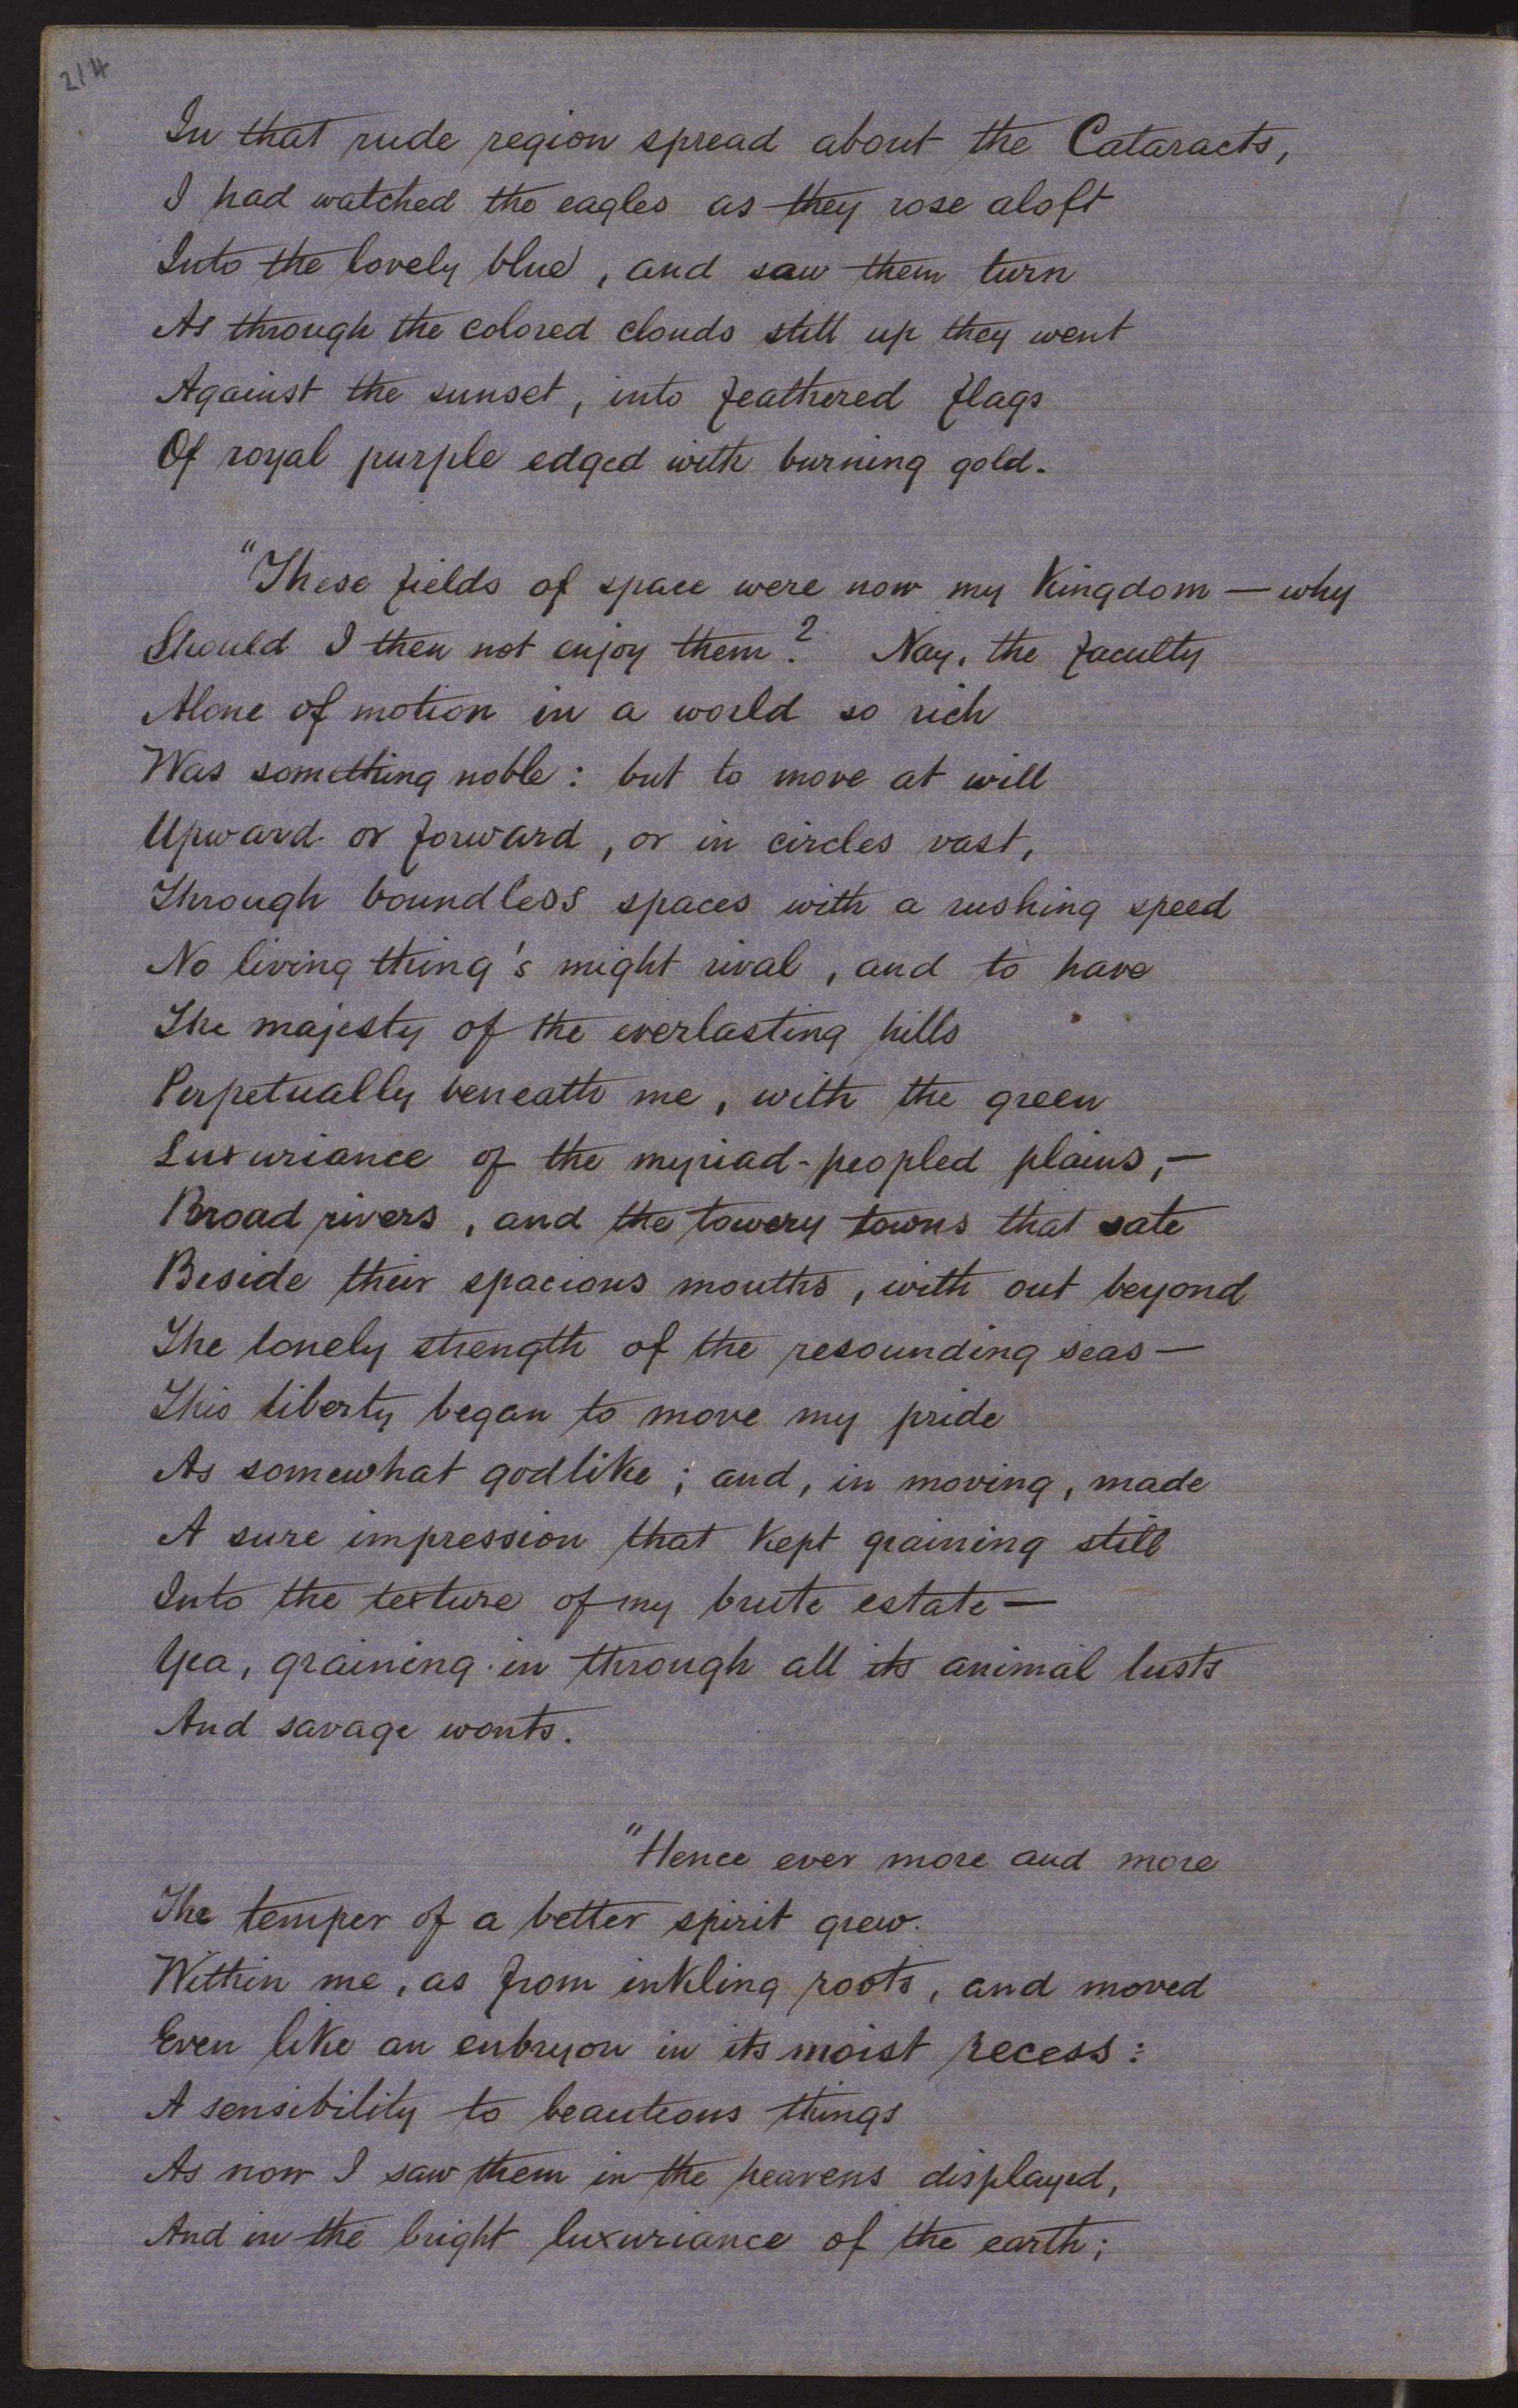 214
In that rude region spread about the Cataracts,
I had watched the eagles as they rose aloft
Into the lovely blue, and saw them turn
As through the colored clouds still up they went
Against the sunset, into feathered flags
Of royal purple edged with burning gold.
"These fields of space were now my kingdom — why
Should I then not enjoy them? Nay, the faculty
Alone of motion in a world so rich
Was something noble: but to move at will
Upward or forward, or in circles vast,
Through boundless spaces with a rushing speed
No living thing's might rival, and to have
The majesty of the everlasting hills
Perpetually beneath me, with the green
Luxuriance of the myriad-peopled plains,—
Broad rivers, and the towery towns that sate
Beside their spacious mouths, with out beyond
The lonely strength of the resounding seas—
This liberty began to move my pride
As somewhat godlike; and, in moving, made
A sure impression that kept graining still
Into the texture of my brute estate—
Yea, graining in through all its animal lusts
And savage wonts.
"Hence ever more and more
The temper of a better spirit grew
Within me, as from inkling roots, and moved
Even like an enbryon in its moist recess:
A sensibility to beauteous things
As now I saw them in the heavens displayed,
And in the bright luxuriance of the earth;